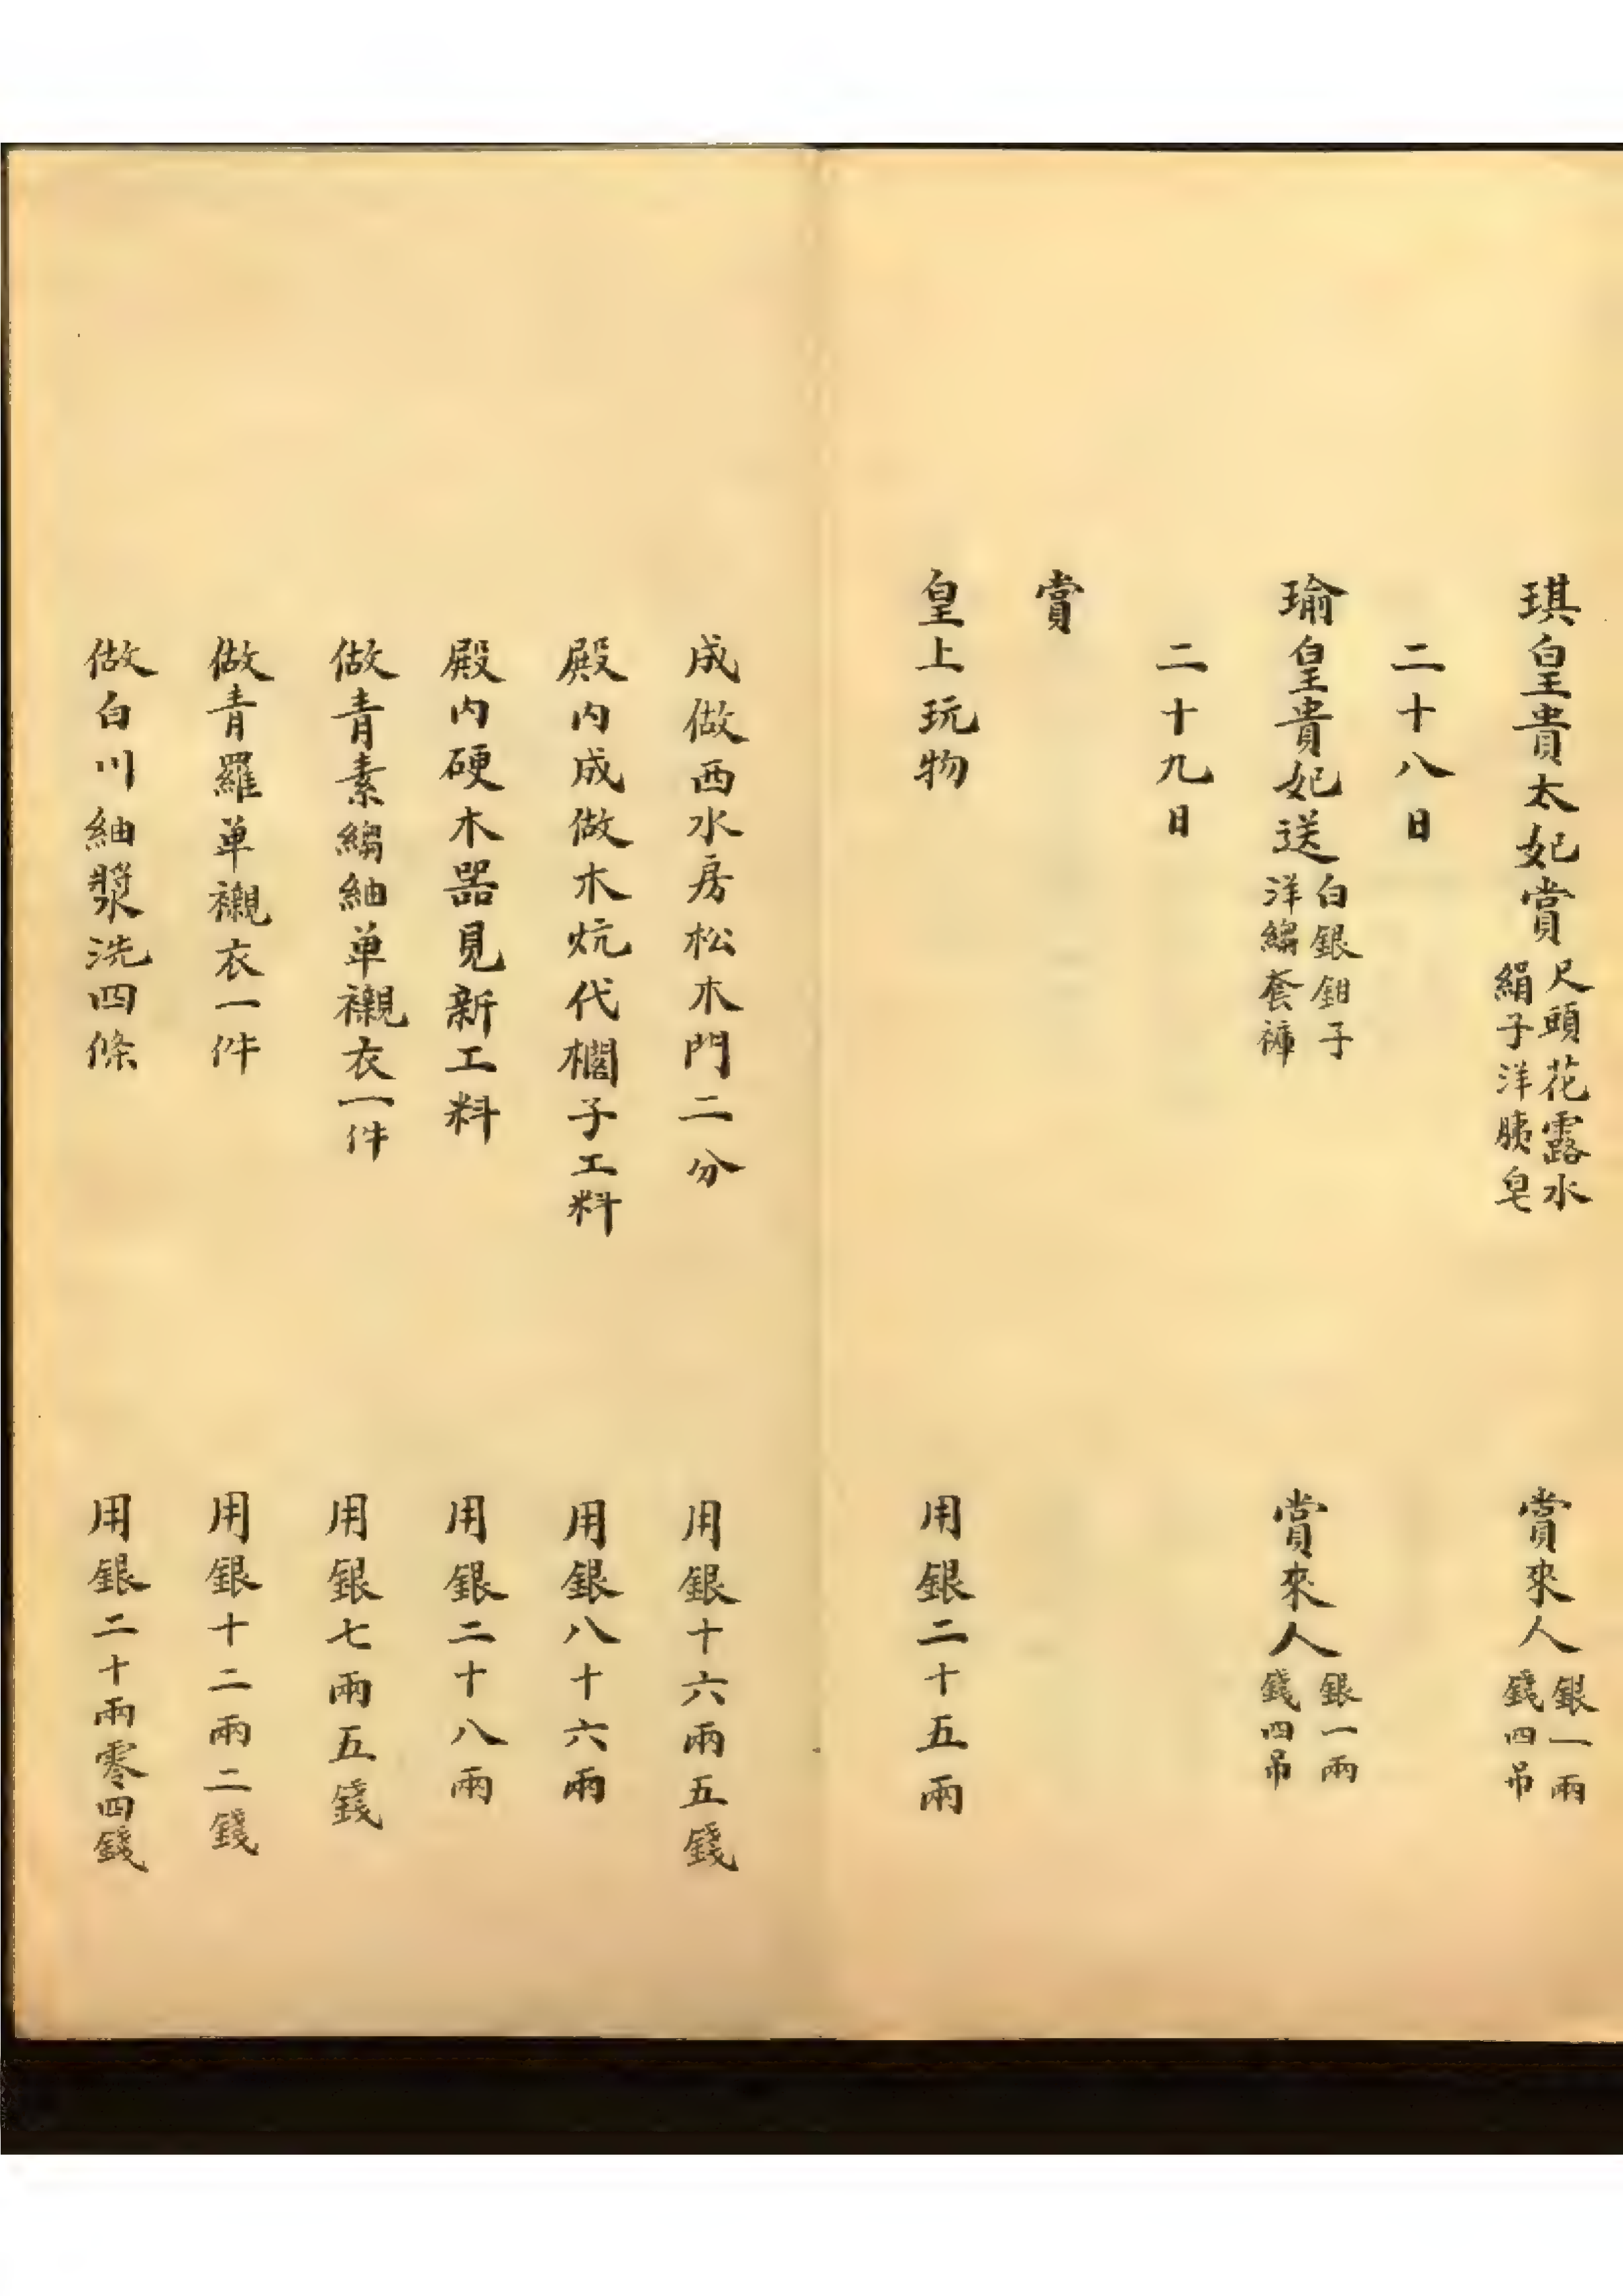 琪皇貴太妃賞 尺頭花露水 絹子洋胰皂 賞來人 銀一兩 錢四吊
二十八日
瑜皇貴妃送 白銀鉗子 洋縐套褲 賞來人 銀一兩 錢四吊
二十九日
賞
皇上玩物 用銀二十五兩
成做西水房松木門二分 用銀十六兩五錢
殿內成做木炕代櫊子工料 用銀八十六兩
殿內硬木器見新工料 用銀二十八兩
做青素縐紬单襯衣一件 用銀七兩五錢
做青羅单襯衣一件 用銀十二兩二錢
做白川紬漿洗四條 用銀二十兩零四錢